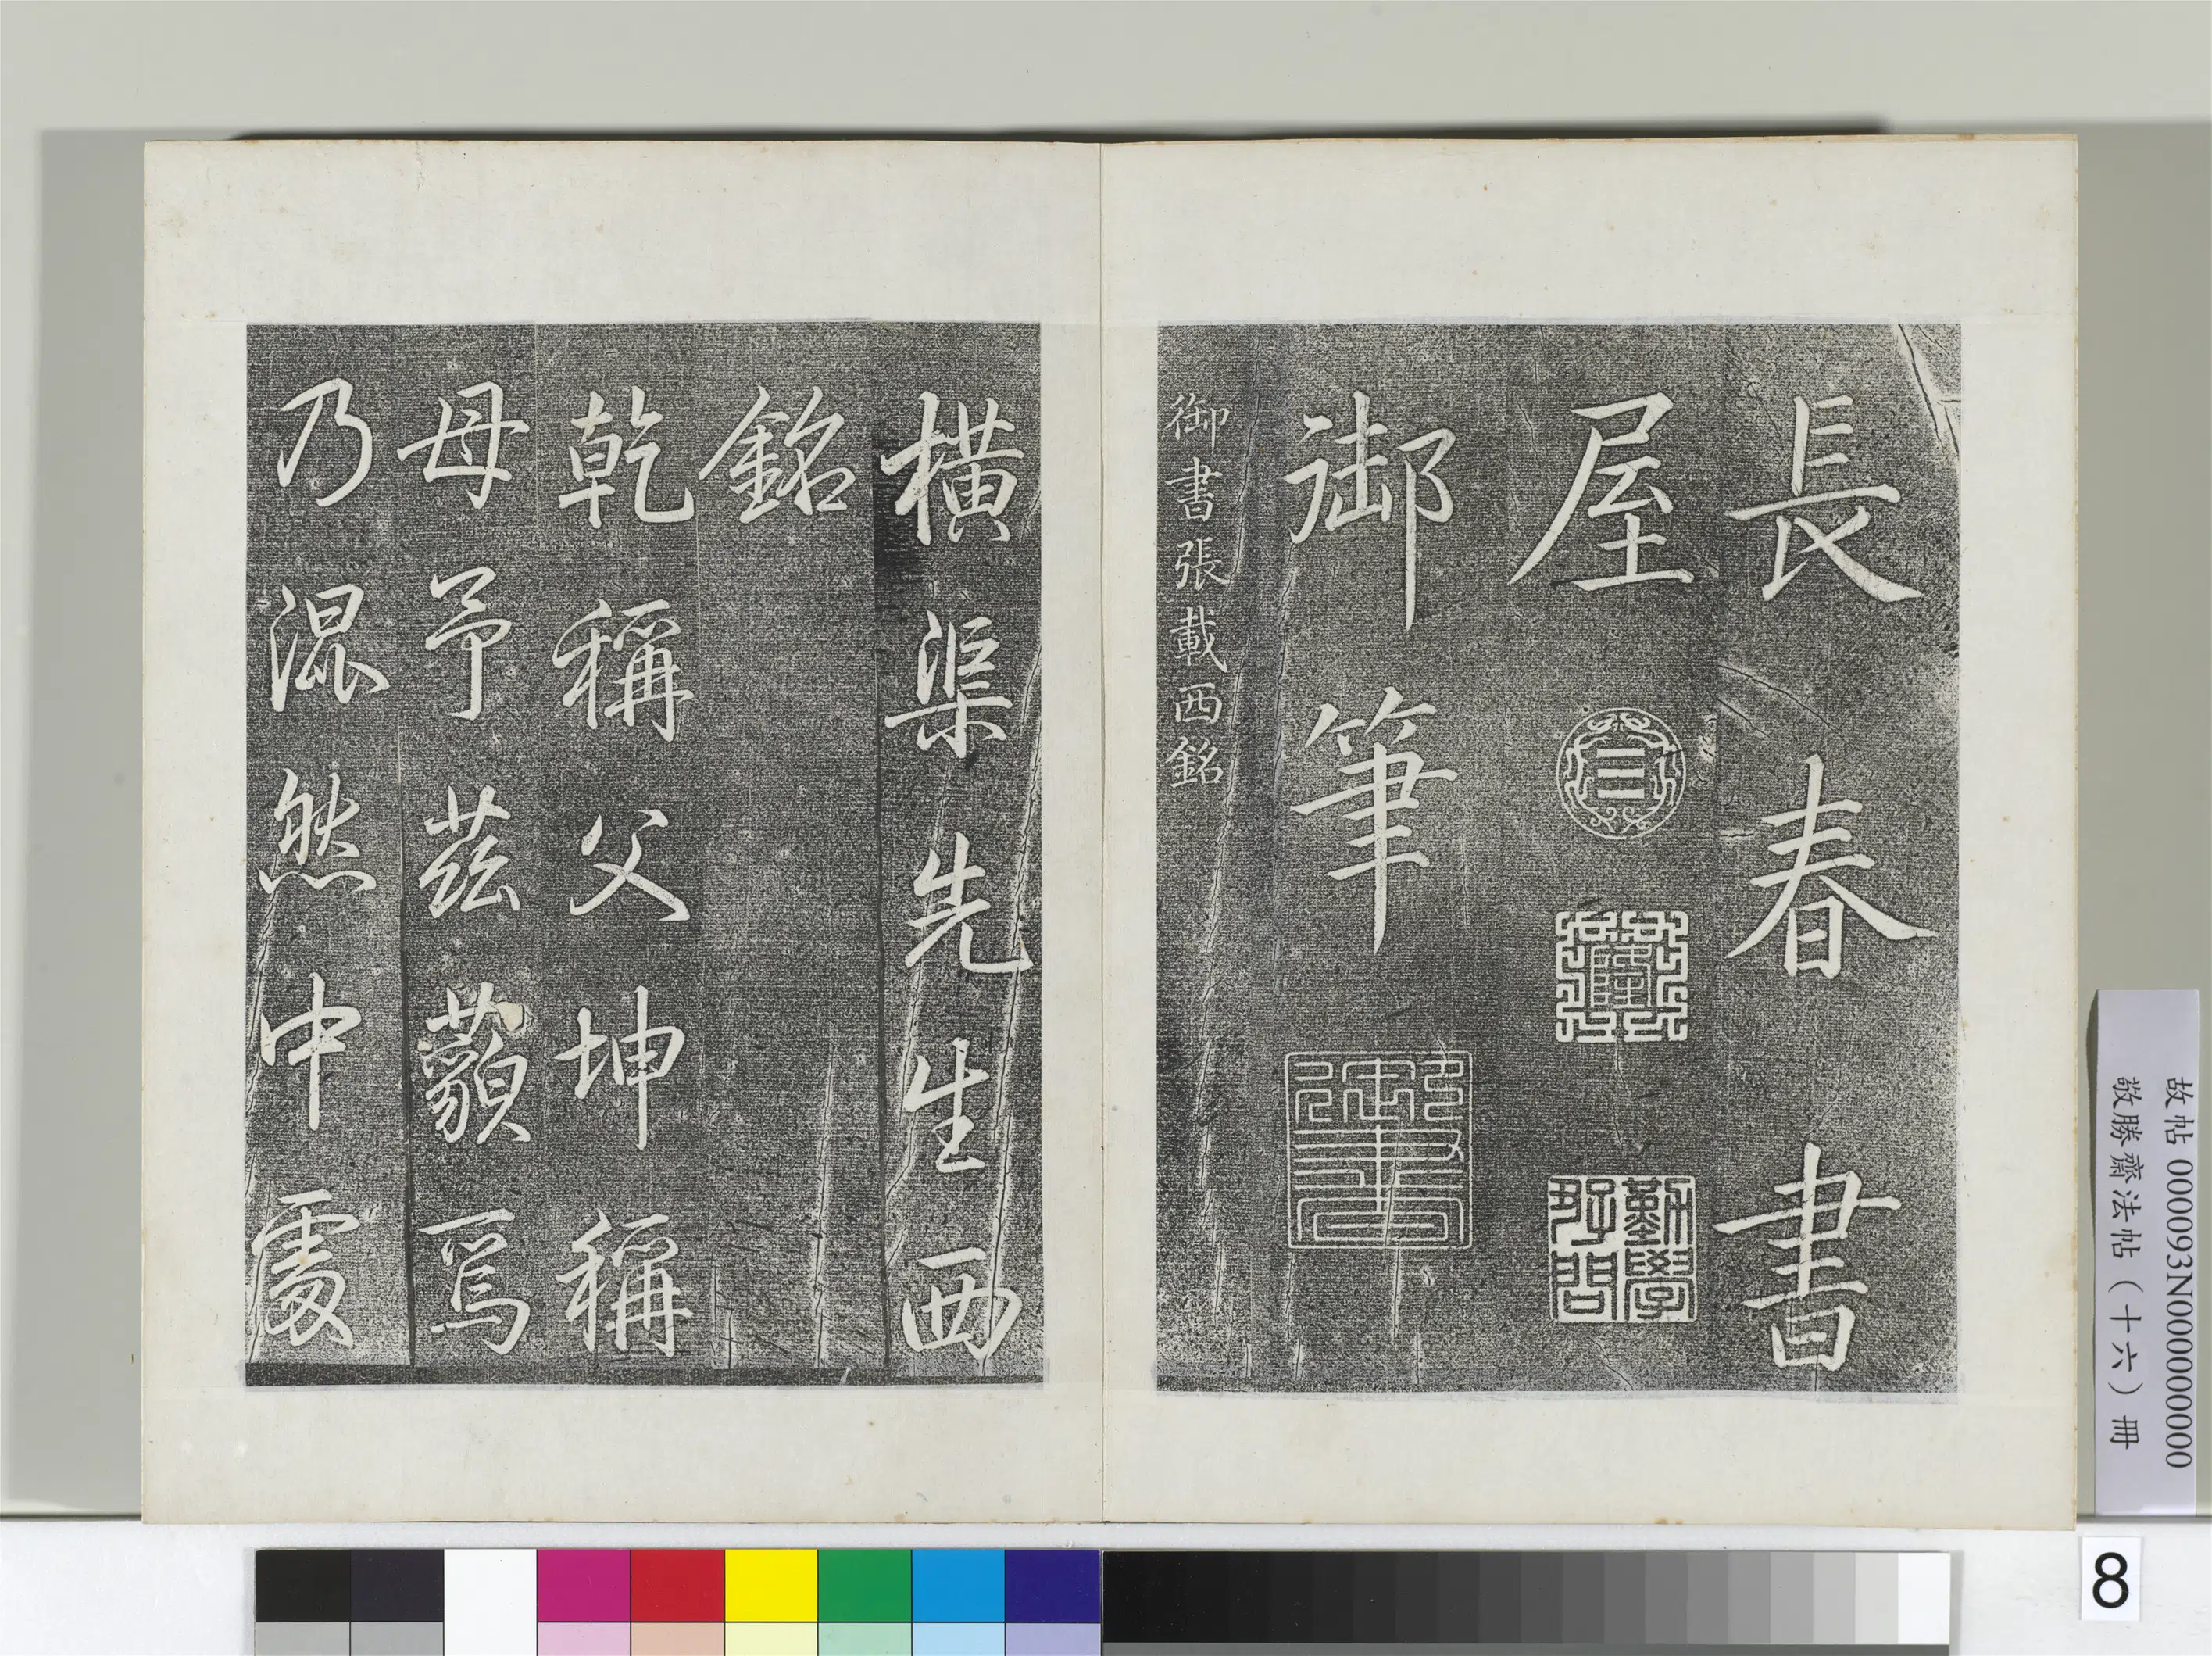 長春書
屋
勤學好問
御筆
御書
御書張載西銘
橫渠先生西
銘
乾稱父坤稱
母予茲藐焉
乃混然中處
故帖 000093N000000000
敬勝齋法帖（十六）冊
8